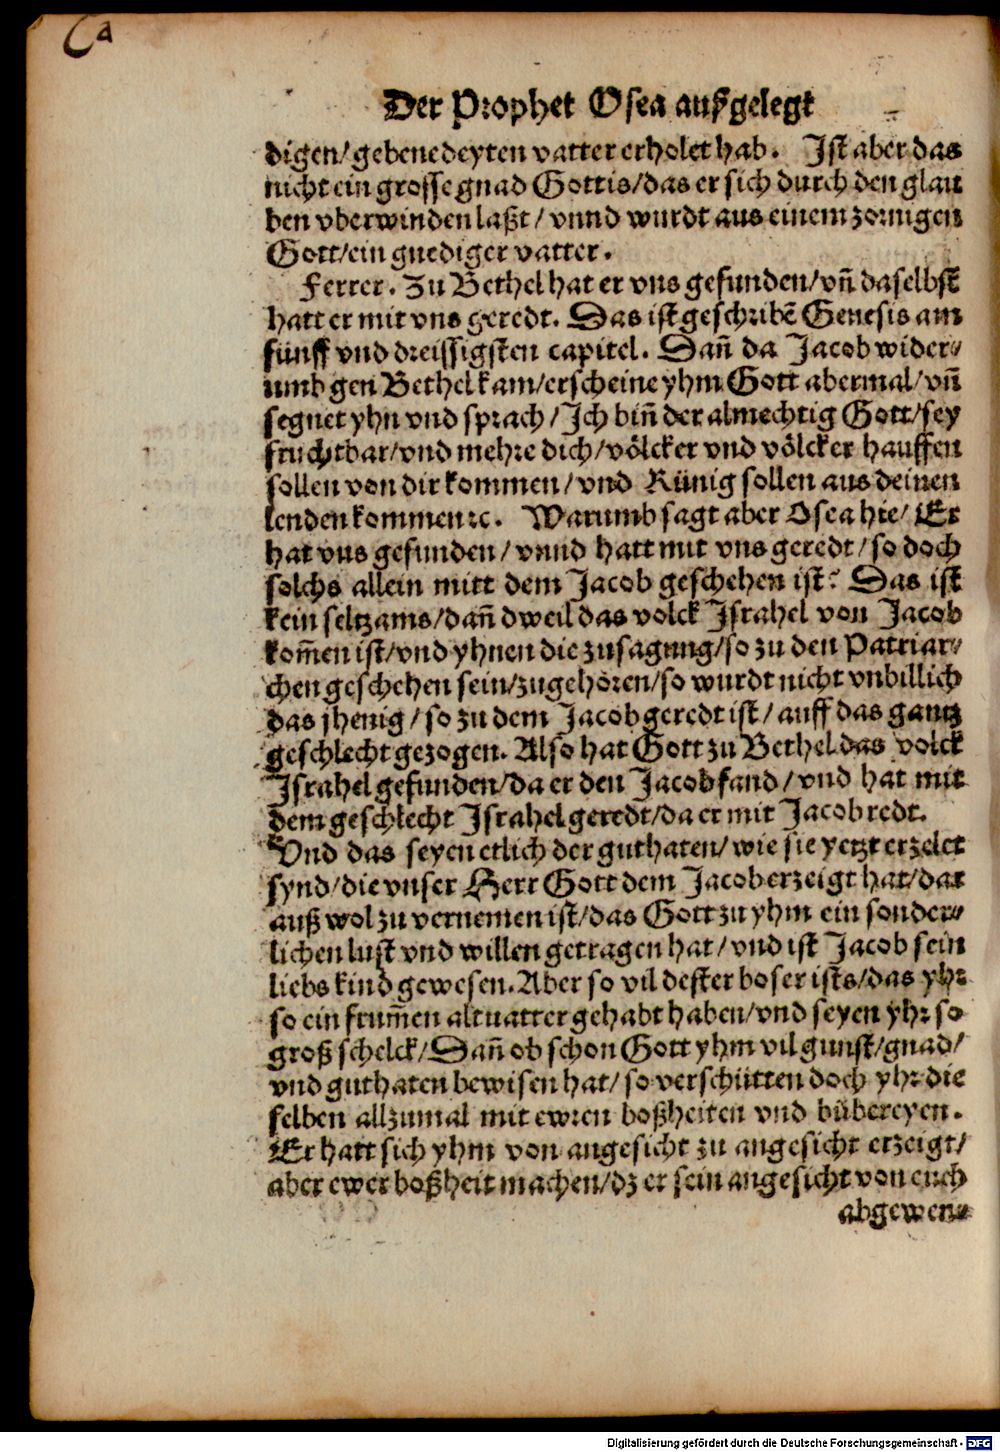 Der Prophet Osea außgelegt
digen/gebenedeyten vatter erholet hab. Ist aber das
nicht ein grosse gnad Gottis/das er sich durch den glau
ben vberwinden laßt/vnnd wurdt aus einem zornigen
Gott/ein gnediger vatter.
Ferrer. Zu Bethel hat er vns gefunden/vn̄ daselbst
hatt er mit vns geredt. Das ist geschribē Genesis am
fünff vnd dreissigsten capitel. Dan̄ da Jacob wider/
umb gen Bethel kam/erscheine yhm Gott abermal/vn̄
segnet yhn vnd sprach/Ich bin̄ der almechtig Gott/sey
fruchtbar/vnd mehre dich/völcker vnd völcker hauffen
sollen von dir kommen/vnd Künig sollen aus deinen
lenden kommen ꝛc. Warumb sagt aber Osea hie/Er
hat vns gefunden/vnnd hatt mit vns geredt/so doch
solchs allein mitt dem Jacob geschehen ist? Das ist
kein seltzams/dan̄ dweil das volck Israhel von Jacob
kom̄en ist/vnd yhnen die zusagung/so zu den Patriar/
chen geschehen sein/zugehören/so wurdt nicht vnbillich
das jhenig/so zu dem Jacob geredt ist/auff das gantz
geschlecht gezogen. Also hat Gott zu Bethel das volck
Israhel gefunden/da er den Jacob fand/vnd hat mit
dem geschlecht Israhel geredt/da er mit Jacob redt.
Vnd das seyen etlich der guthaten/wie sie yetzt erzelet
synd/die vnser Herr Gott dem Jacob erzeigt hat/dar
auß wol zu vernemen ist/das Gott zu yhm ein sonder/
lichen lust vnd willen getragen hat/vnd ist Jacob sein
liebs kind gewesen. Aber so vil dester boser ists/das yhr
so ein frum̄en altuatter gehabt haben/vnd seyen yhr so
groß schelck/Dan̄ ob schon Gott yhm vil gunst/gnad/
vnd guthaten bewisen hat/so verschütten doch yhr die
selben allzumal mit ewren boßheiten vnd bübereyen.
Er hatt sich yhm von angesicht zu angesicht erzeigt/
aber ewer boßheit machen/dz er sein angesicht von euch
abgewen/
Digitalisierung gefördert durch die Deutsche Forschungsgemeinschaft - DFG